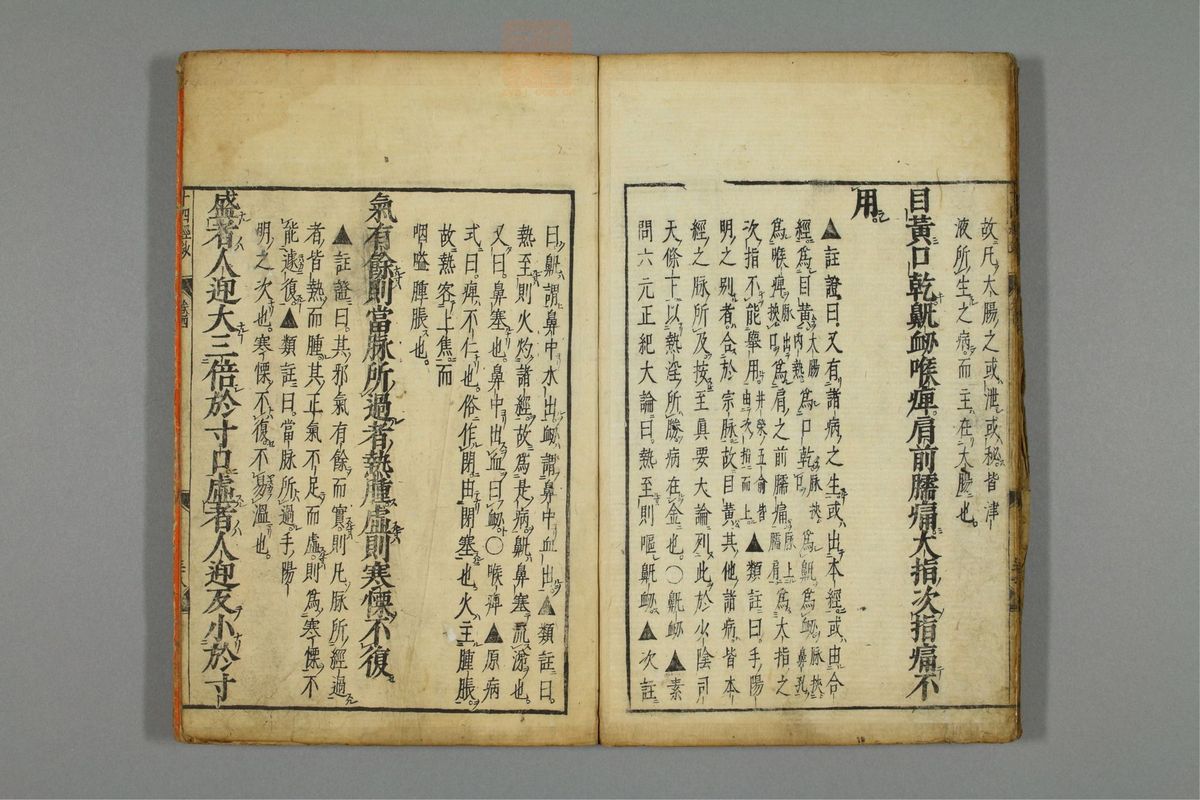 故凡大腸之或泄或秘皆津
液所生之病而主在大腸也
目黃口乾鼽衄喉痺肩前臑痛大指次指痛不
用
▲註證曰又有諸病之生或出本經或由合
經爲目黃大腸内熱爲口乾脉挾口爲鼽爲衄脉挾鼻孔
爲喉痺脉出挾口爲肩之前臑痛脉上臑肩爲大指之
次指不能舉用井榮五俞皆由次指而上▲類註曰手陽
明之别者合於宗脉故目黃其他諸病皆本
經之脉所及按至眞要大論列此於少陰司
天條下以熱淫所勝病在金也〇鼽衄▲素
問六元正紀大論曰熱至則嘔鼽衄▲次註
曰鼽謂鼻中水出衄謂鼻中血出▲類註曰
熱至則火灼諸經故爲是病鼽鼻塞流涕也
又曰鼻塞也鼻中出血曰衄〇喉痺▲原病
式曰痺不仁也俗作閉由閉塞也火主腫脹
故熱客上焦而
咽嗌腫脹也
氣有餘則當脉所過者熱腫虛則寒慄不復
▲註證曰其邪氣有餘而實則凡脉所經過
者皆熱而腫其正氣不足而虛則爲寒慄不
能遽復▲類註曰當脉所過手陽
明之次也寒慄不復不易溫也
盛者人迎大三倍於寸口虛者人迎反小於寸
十四經抄
卷四